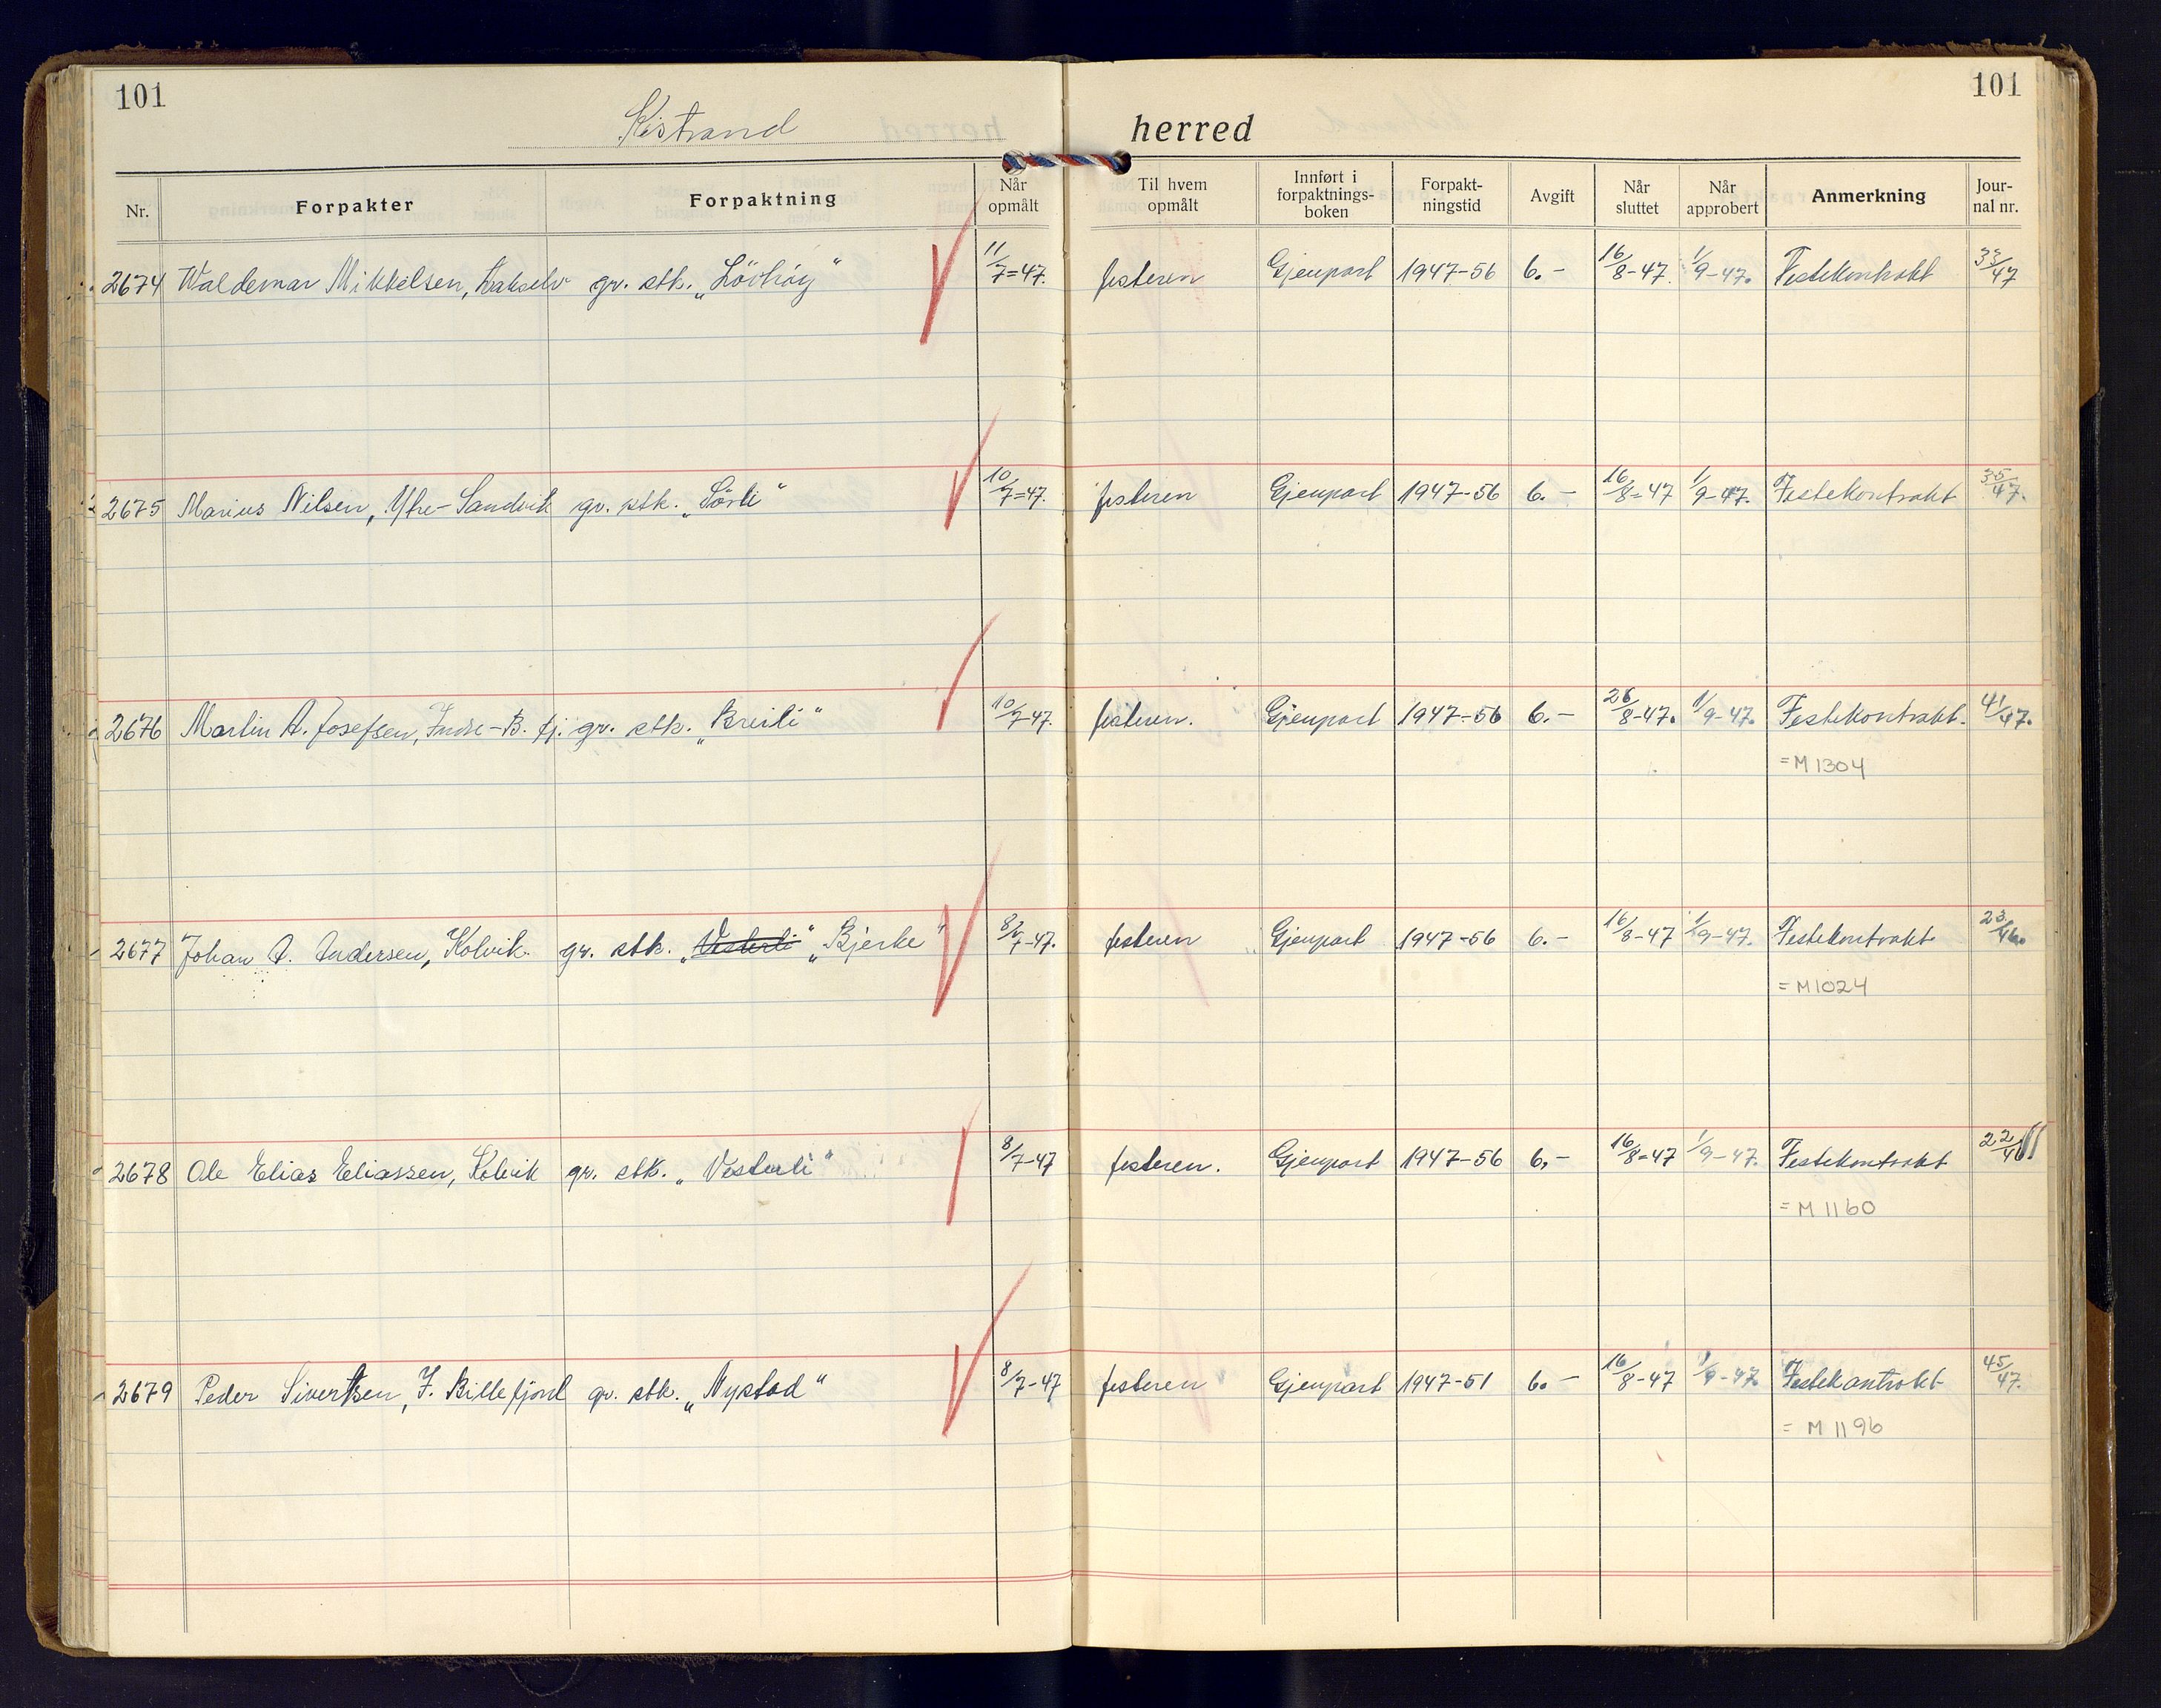 101 101
Kistrand herred
Nr. Forpakter Forpaktning Når opmålt Til hvem opmålt Innført i forpaktnings-boken Forpakt-ningstid Avgift Når sluttet Når approbert Anmerkning Jour-nal nr.
2674 Waldemar Mikkelsen, gr. stk. 11/7=47. festeren Gjenpart 1947-56 6.- 16/8-47. 1/9-47. Festekontrakt 33/47
2675 Marius Nilsen, Ytre-Sandvik gr. stk. „Sörli“ 10/7=47. festeren Gjenpart 1947-56 6.- 16/8-47 1/9-47. Festekontrakt 35/47.
2676 Martin A. Josefsen, Indre-B. fj. gr. stk. „Breili“ 10/7-47. festeren. Gjenpart 1947-56 6.- 26/8-47. 1/9-47. Festekontrakt. 41/47.
=M1304
2677 Johan A. Andersen, Kolvik. gr. stk. „Vesterli“ „Bjerke“ 8/7-47. festeren Gjenpart 1947-56 6.- 16/8-47 1/9-47. Festekontrakt 23/46.
=M1024
2678 Ole Elias Eliassen, Kolvik gr. stk. „Vesterli“ 8/7-47 festeren. Gjenpart 1947-56 6,- 16/8-47 1/9-47. Festekontrakt 22/46
=M1160
2679 Peder Sivertsen, I. Billefjord gr. stk. „Nystad“ 8/7-47 festeren Gjenpart 1947-51 6.- 16/8-47 1/9-47. Festekontrakt 45/47.
= M 1196